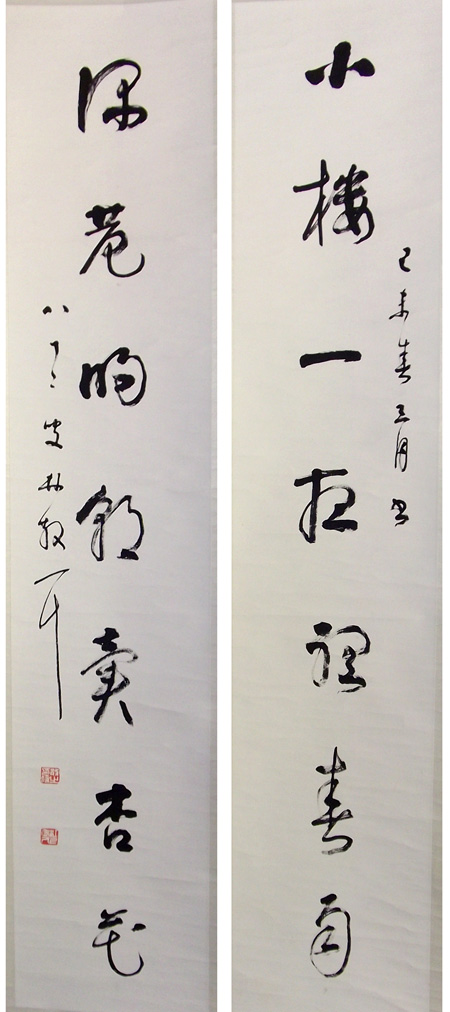 小樓一夜聽春雨
己未春三月書
深巷明朝賣杏花
八十二叟林散耳